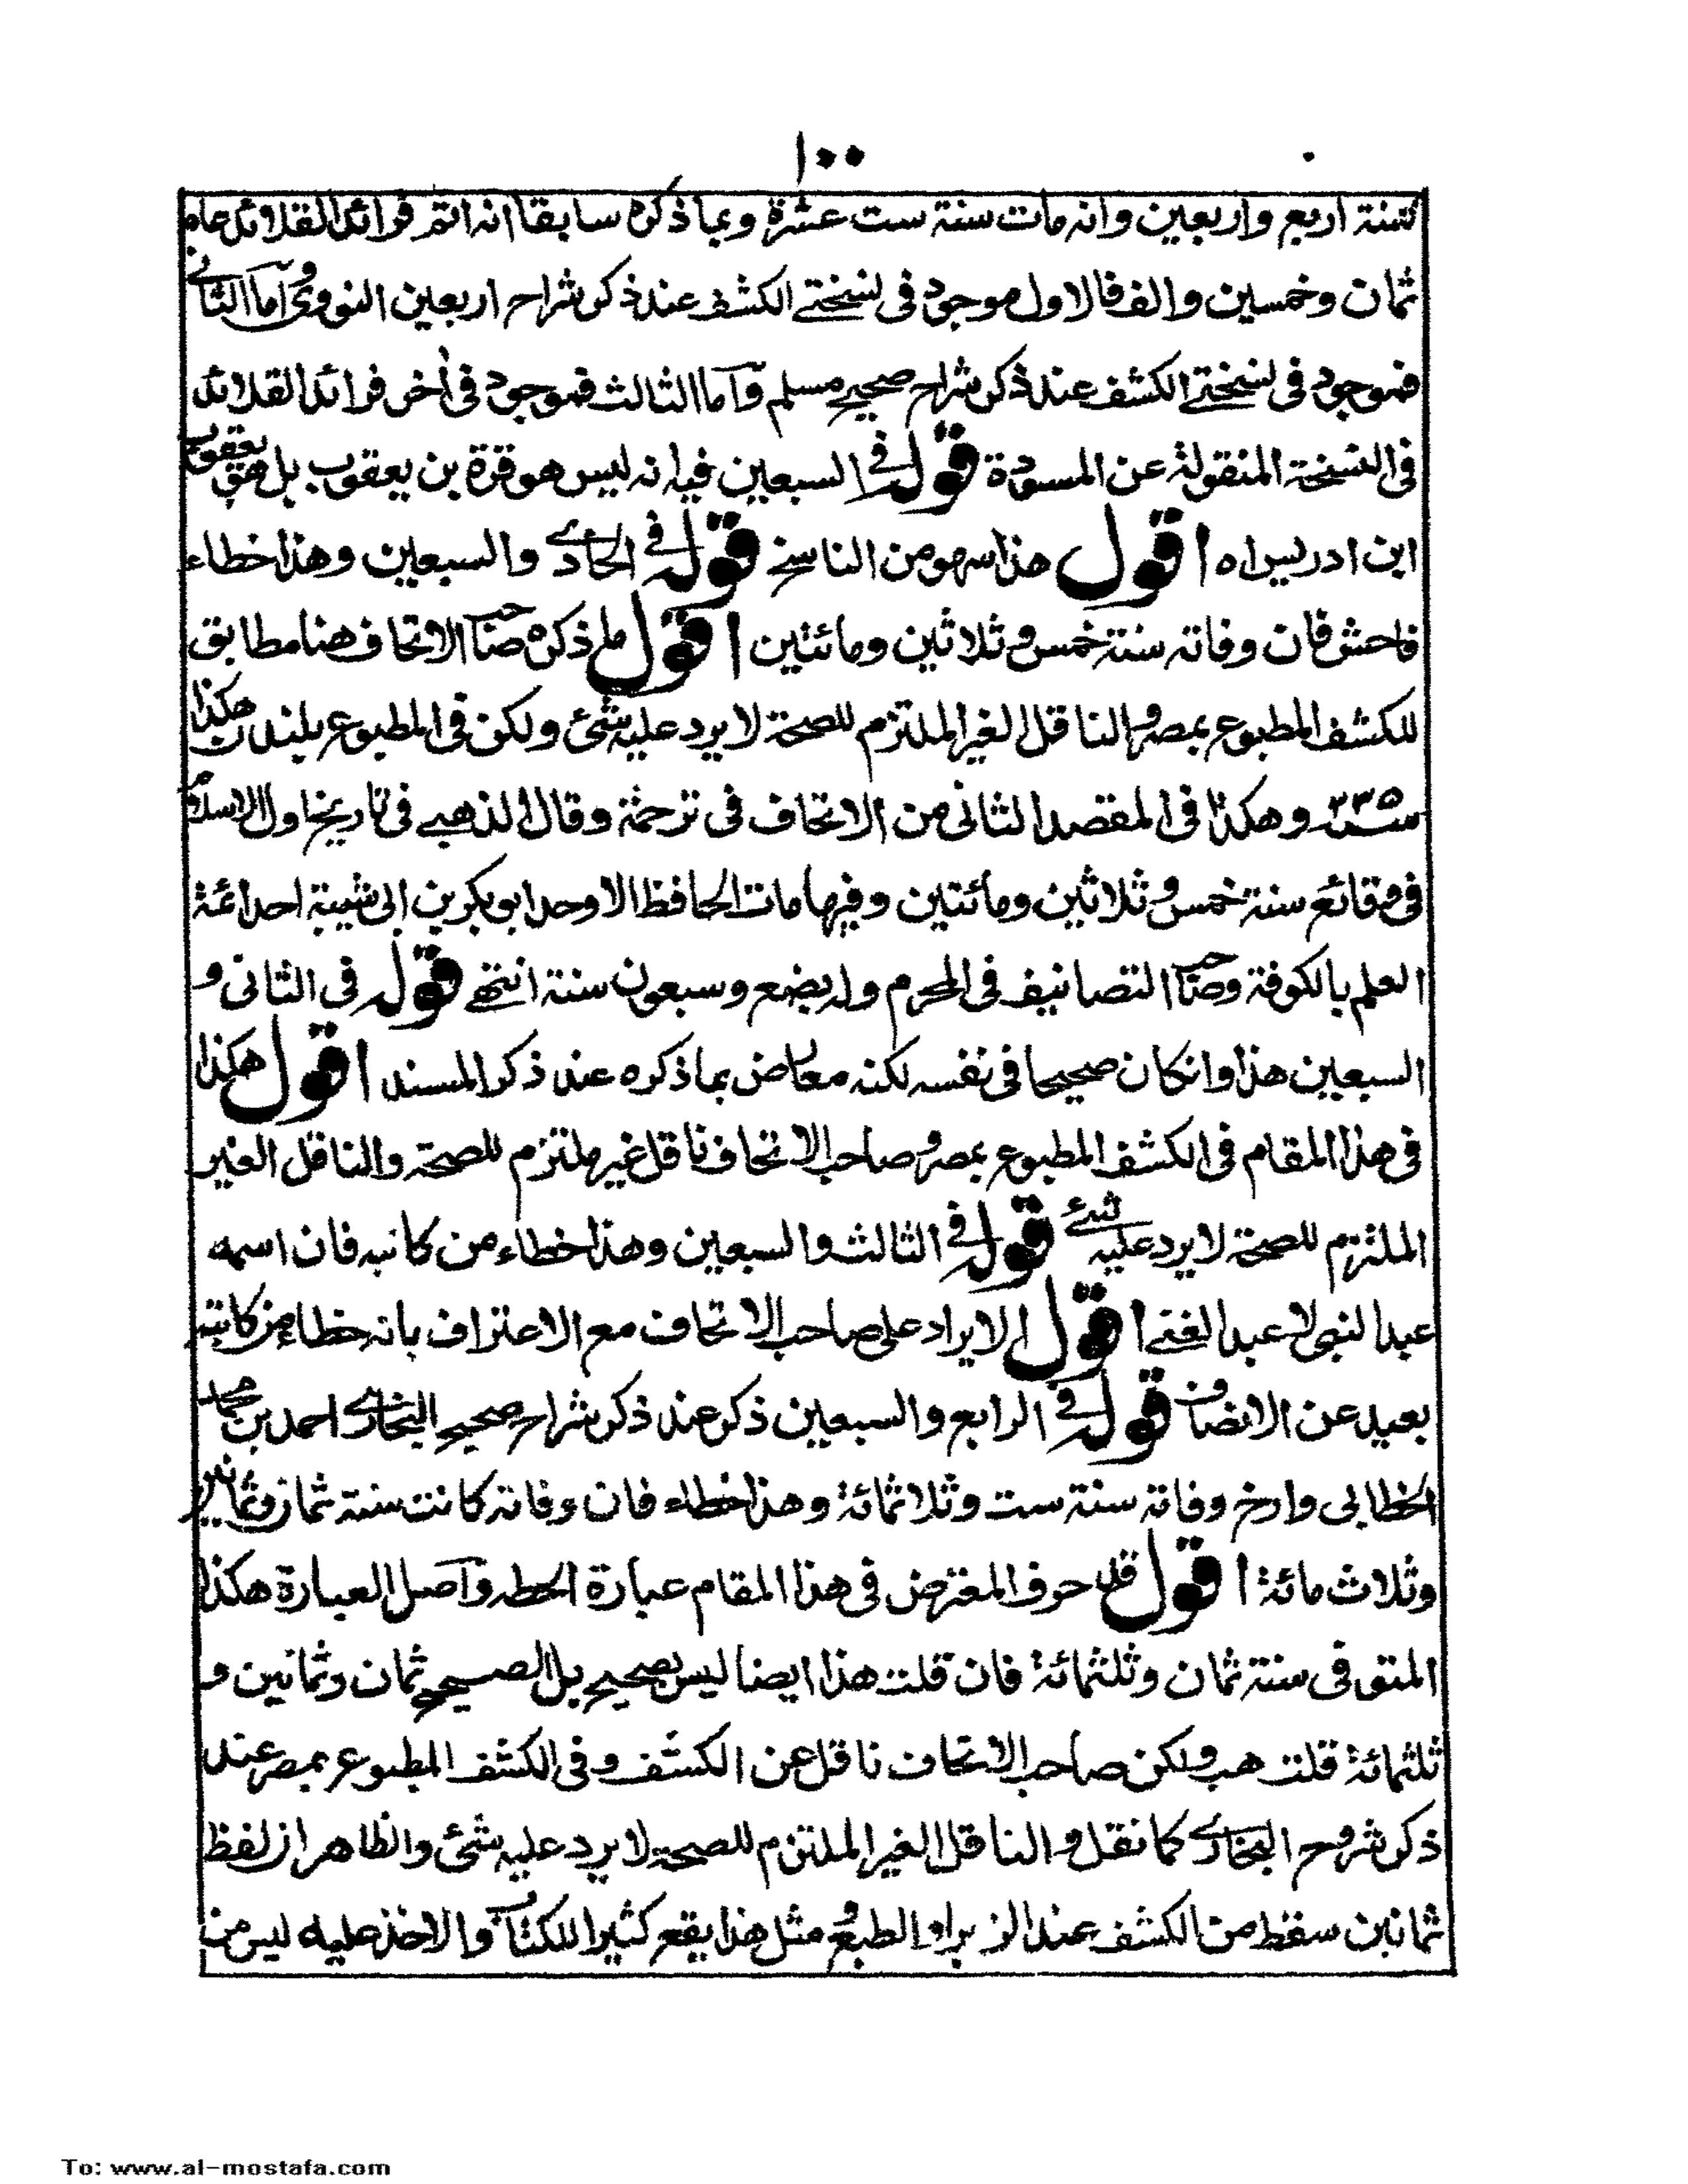 ١٠٠
سنة اربع واربعين وانه مات سنة ست عشرة وبما ذكره سابقا انه اتم فرائد القلائد عام
ثمان وخمسين والف فالاول موجود فى نسختے الكشف عند ذكر شراح اربعين النووى واما الثانے
فموجود فى نسختے الكشف عند ذكر شراح صحيح مسلم واما الثالث فموجود فى أخر فرائد القلائد
فى النسخة المنقولة عن المسودة قوله فے السبعين فيه انه ليس هو قرة بن يعقوب بل هو يعقوب
ابن ادريس اه اقول هذا سهو من الناسخ قوله فے الحادے والسبعين وهذا خطاء
فاحش فان وفاته سنة خمس وثلاثين ومائتين اقول ما ذكره صاحب الاتحاف هنا مطابق
للكشف المطبوع بمصر والناقل الغير الملتزم للصحة لا يرد عليه شئ ولكن فى المطبوع بلندن هكذا
سنة ٢٣٥ وهكذا فى المقصد الثانى من الاتحاف فى ترجمة وقال الذهبے فى تاريخ اول الاسلام
فى وقائع سنة خمس وثلاثين ومائتين وفيها مات الحافظ الاوحد ابو بكر بن ابى شيبة احد ائمة
العلم بالكوفة وصاحب التصانيف فى المحرم وله بضع وسبعون سنة انتهے قوله فى الثانى و
السبعين هذا وانكان صحيحا فى نفسه لكنه معارض بما ذكره عند ذكر المسند اقول هكذا
فى هذا المقام فى الكشف المطبوع بمصر وصاحب الاتحاف ناقل غير ملتزم للصحة والناقل الغير
الملتزم للصحة لا يرد عليه شئے قوله فے الثالث والسبعين وهذا خطاء من كاتبه فان اسمه
عبد النبى لا عبد الغنے اقول الايراد على صاحب الاتحاف مع الاعتراف بانه خطاء من كاتبه
بعيد عن الانصاف قوله فے الرابع والسبعين ذكر عند ذكر شراح صحيح البخارے احمد بن محمد
الخطابى وارخ وفاته سنة ست وثلاثمائة وهذا خطاء فان وفاته كانت سنة ثمان وثمانين
وثلاث مائة اقول قد حرف المعترض فى هذا المقام عبارة الحطه واصل العبارة هكذا
المتوفى سنة ثمان وثلثمائة فان قلت هذا ايضا ليس بصحيح بل الصحيح ثمان وثمانين و
ثلثمائة قلت هب ولكن صاحب الاتحاف ناقل عن الكشف وفى الكشف المطبوع بمصر عند
ذكر شروح البخارے كما نقل والناقل الغير الملتزم للصحة لا يرد عليه شئ والظاهر ان لفظ
ثمانين سقط من الكشف عند الطبع ومثل هذا يقع كثيرا للكتاب والاخذ عليه ليس من
To: www.al-mostafa.com